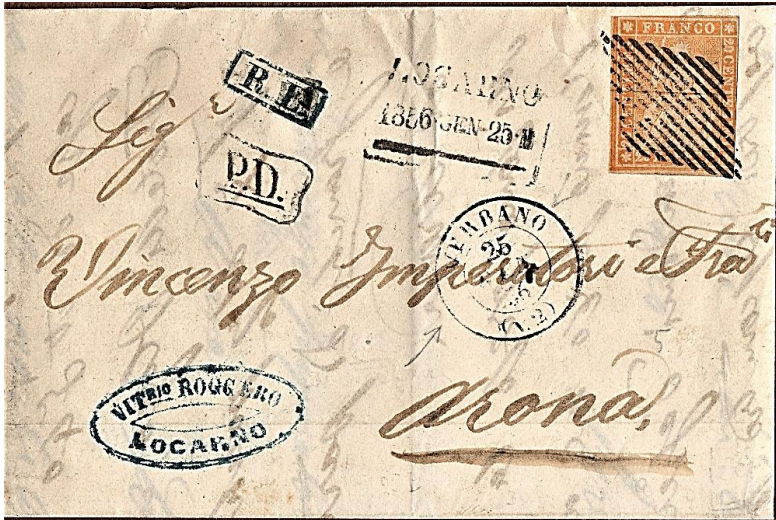 FRANCO
R. L.
LOCARNO
1856·GEN·25·M
Sigri
P.D.
VERBANO
25
(N.2)
Vincenzo Imperatori e Fratli
VITRIO ROGGERO
LOCARNO
Arona.